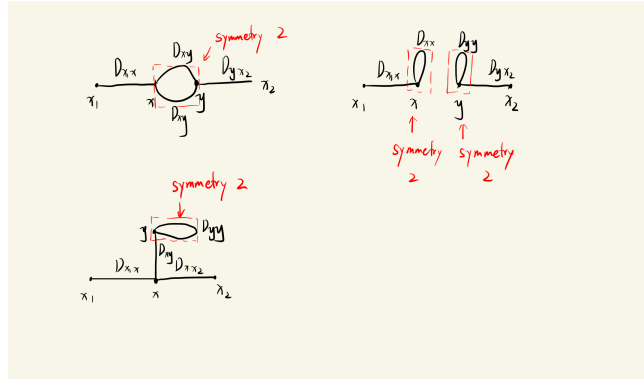 symmetry 2
D_xy
D_x₁x
D_yx₂
x₁
x
y
x₂
D_xy
D_xx
D_yy
D_x₁x
D_yx₂
x₁
x
y
x₂
symmetry
2
symmetry
2
symmetry 2
y
D_yy
D_xy
D_x₁x
D_xx₂
x₁
x
x₂